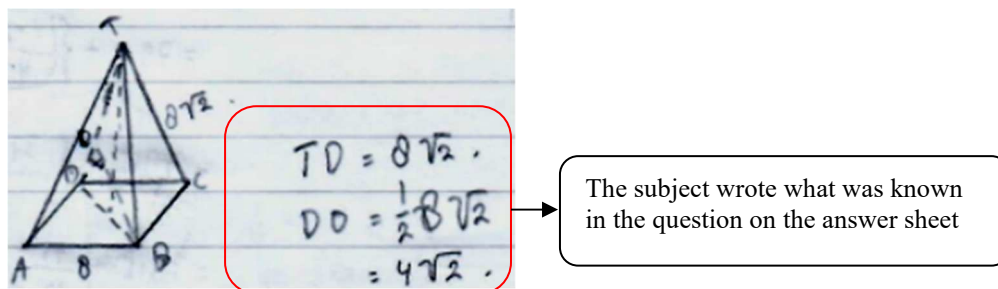 T
8√2 .
D C
A 8 B
TD = 8√2 .
DO = 1/2 8√2
= 4√2 .
The subject wrote what was known
in the question on the answer sheet